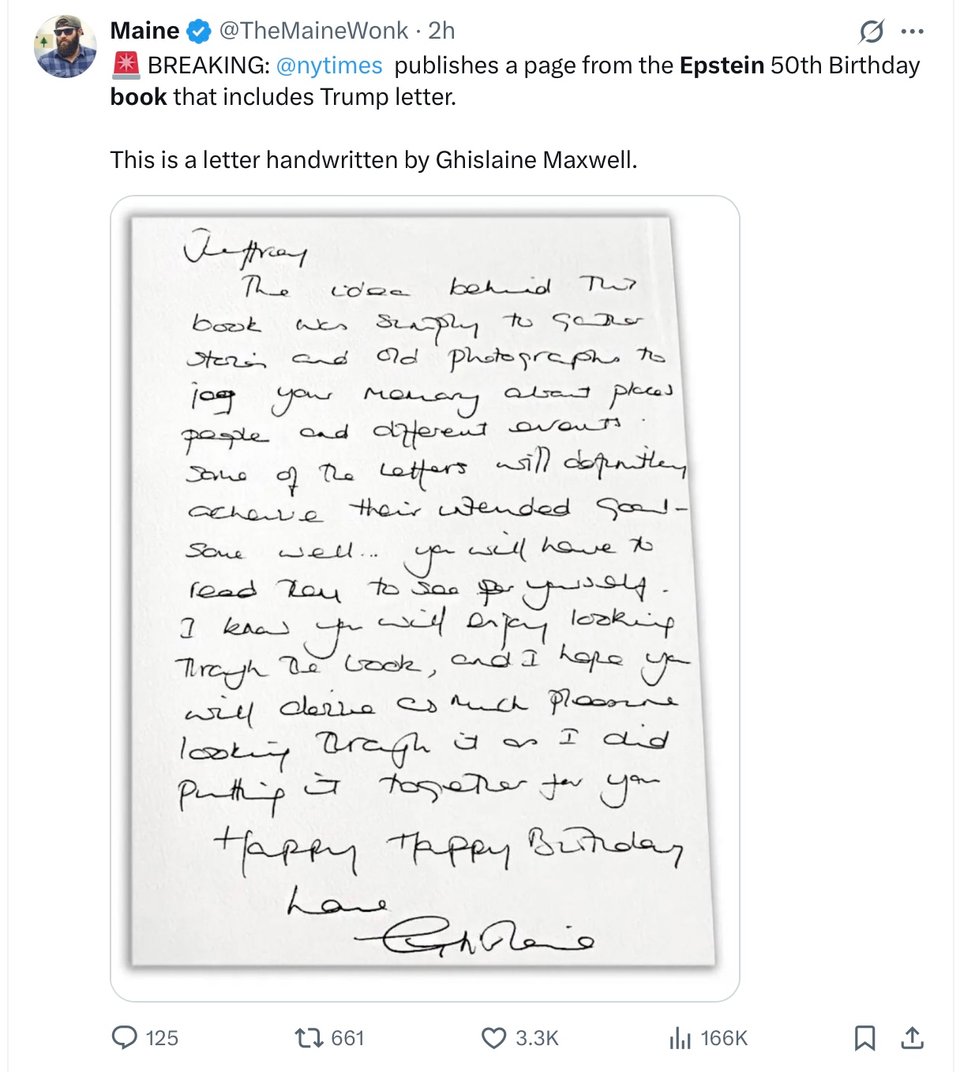 Maine @TheMaineWonk · 2h
🚨 BREAKING: @nytimes publishes a page from the Epstein 50th Birthday
book that includes Trump letter.
This is a letter handwritten by Ghislaine Maxwell.
Jeffrey
The idea behind This
book was simply to gather
stories and old photographs to
jog your memory about places
people and different events.
Some of the Letters will definitely
achieve their intended goal -
some well... you will have to
read them to see for yourself.
I know you will enjoy looking
Through The book, and I hope you
will derive as much pleasure
looking Through it as I did
Putting it together for you
Happy Happy Birthday
Love
Ghislaine
125 661 3.3K 166K